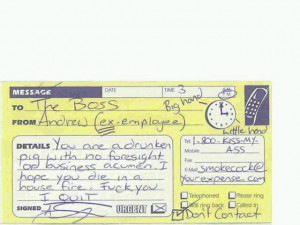 MESSAGE DATE TIME 3 PM
TO The Boss Big hand
FROM Andrew (ex-employee) Little hand
DETAILS You are a drunken
pig with no foresight
or business acumen. I
hope you die in a
house fire. Fuck you
I QUIT
Tel 1-800-KISS-MY-
Mobile ASS
Fax
E-Mail smokecock@
yourexpense.com
Telephoned Please ring
Will ring back Called in
Don't Contact
SIGNED URGENT